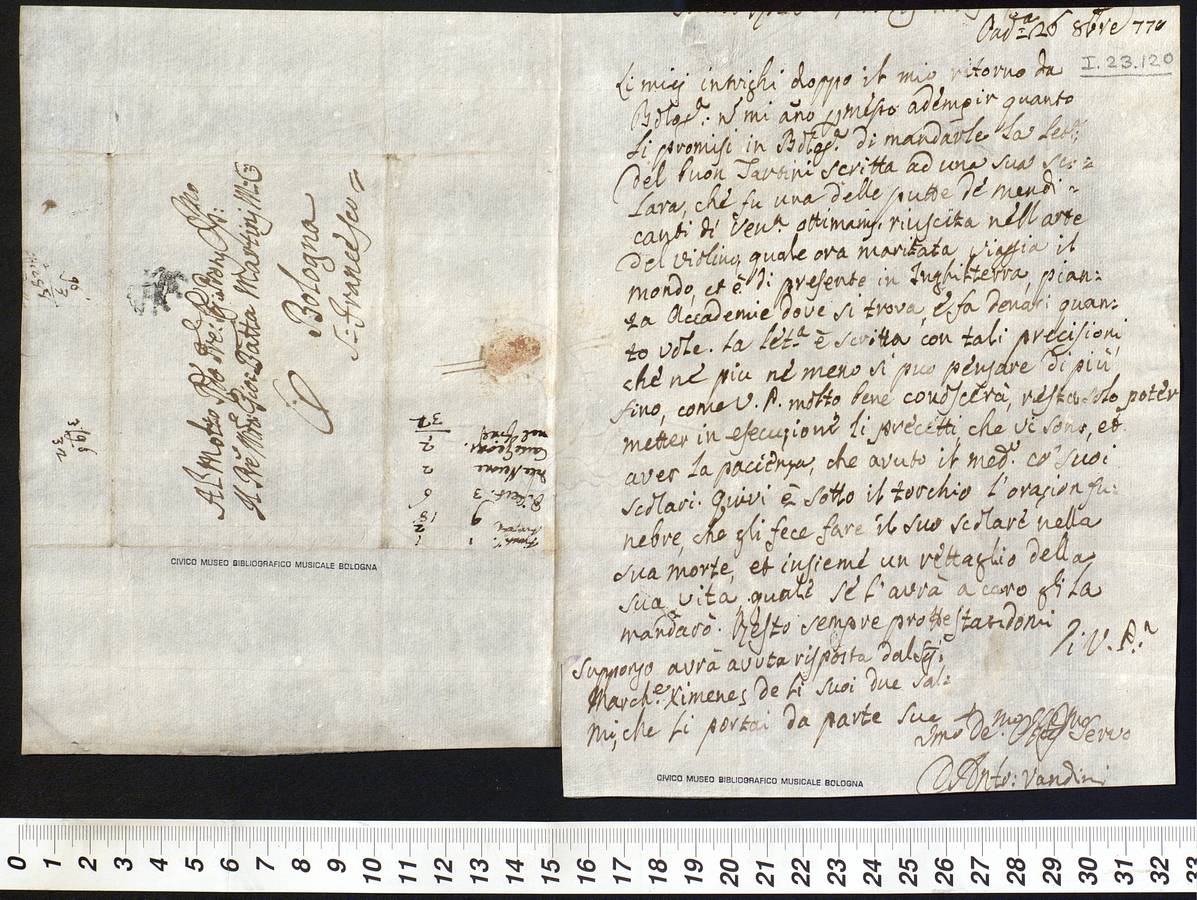 Pad.ª 26 8bre 770
I.23.120
Li miei intrighi doppo il mio ritorno da
Bologª: n' mi año pmesso adempir quanto
li promisi in Bologª. di mandarle la lettª:
del buon Tartini scritta ad una sua sco=
lara, che fu una delle putte de mendi=
canti di Venª. ottimamᵉ. riuscita nell arte
del violino, quale ora maritata viaggia il
mondo, et è di presente in Inghilterra, pian=
ta Accademie dove si trova, e fa denari quan=
to vole. La letª è scritta con tali precisioni
che ne piu ne meno si puo pensare di più
fino, come V. P. molto bene conoscerà, resta solo poter
metter in esecuzione li precetti, che vi sono, et
aver la pacienza, che avuto il medº. co' suoi
scolari. Quivi è sotto il torchio l'orazion fu=
nebre, che gli fece fare il suo scolare nella
sua morte, et insieme un rettaglio della
sua vita quale se l'avrà a caro gli la
mandarò. Resto sempre protestandomi
Di V. P.ª
Suppongo avrà avuta risposta dal Sig:
March.e Ximenes de li suoi due Sal=
mi, che li portai da parte sua
Servo
D. Antº: Vandini
Al Molto Rdo Pre:
Il Pre Mro: Gio: Batta Martini M: C
Bologna
S: Francesco
CIVICO MUSEO BIBLIOGRAFICO MUSICALE BOLOGNA
CIVICO MUSEO BIBLIOGRAFICO MUSICALE BOLOGNA
0 1 2 3 4 5 6 7 8 9 10 11 12 13 14 15 16 17 18 19 20 21 22 23 24 25 26 27 28 29 30 31 32 33